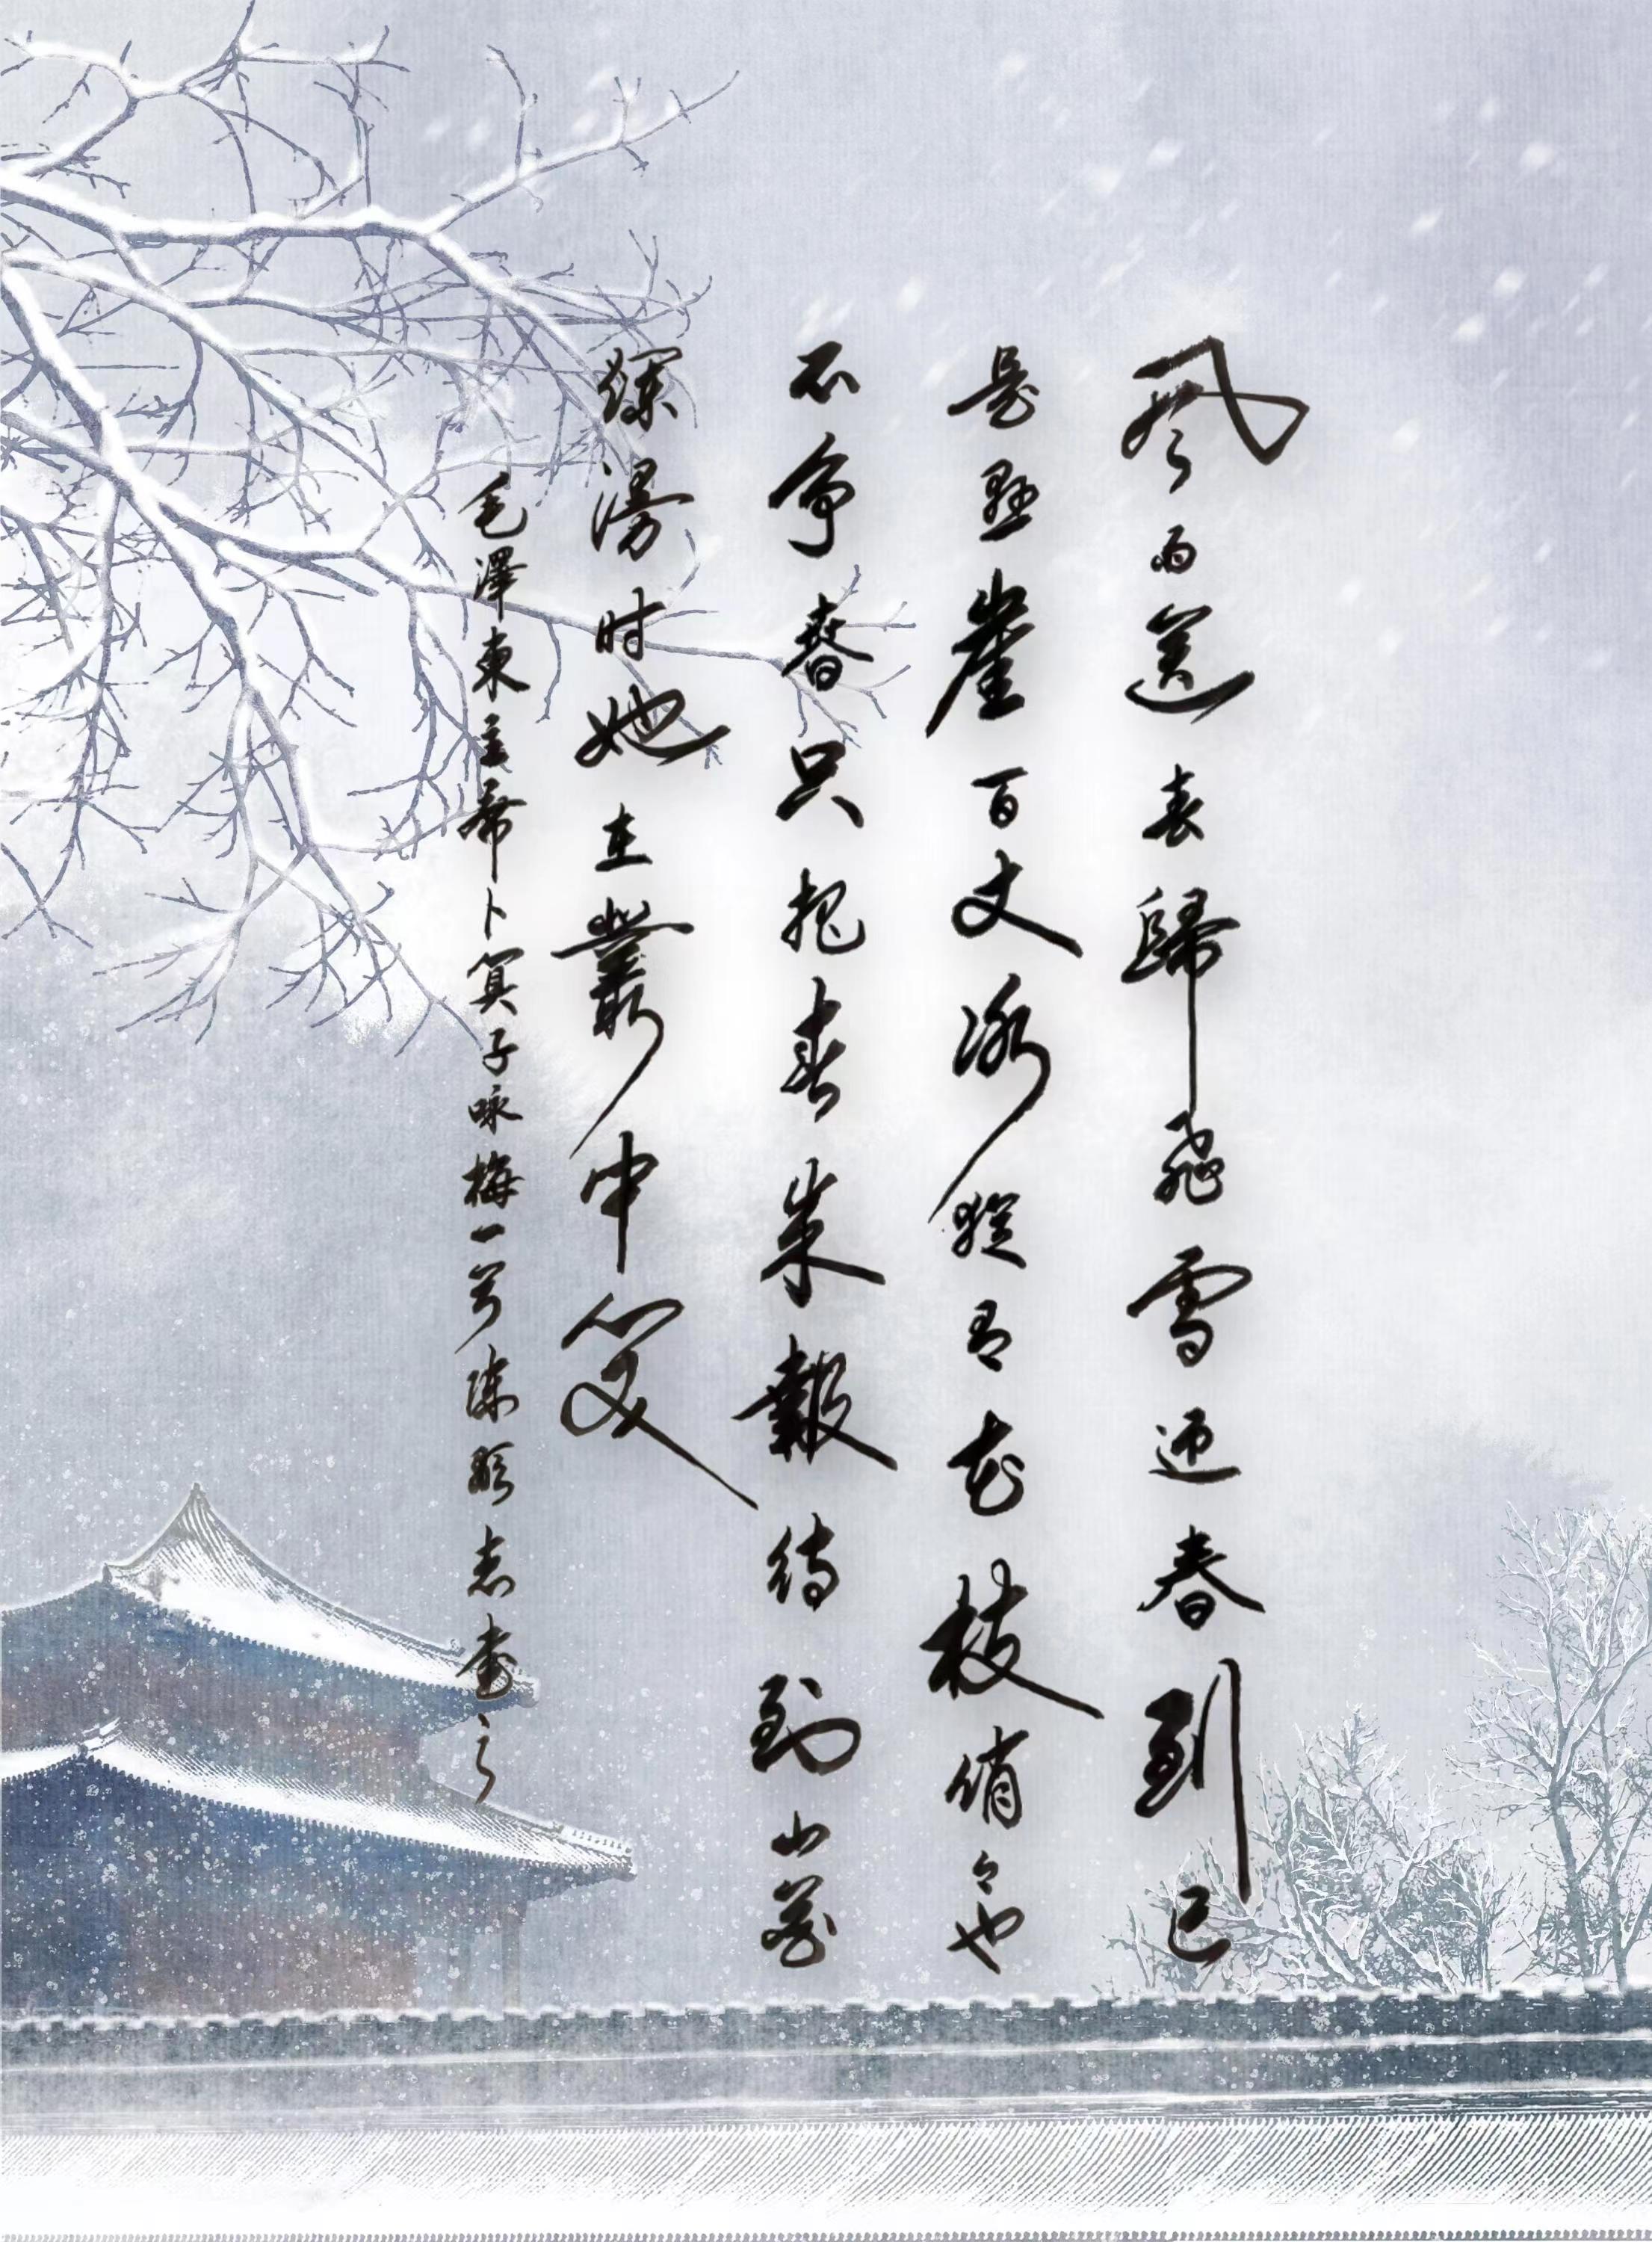 風雨送春歸飛雪迎春到已
是懸崖百丈冰猶有花枝俏々也
不争春只把春來報待到山花
爛漫时她在叢中笑
毛澤東主席卜算子咏梅一首陳志書之